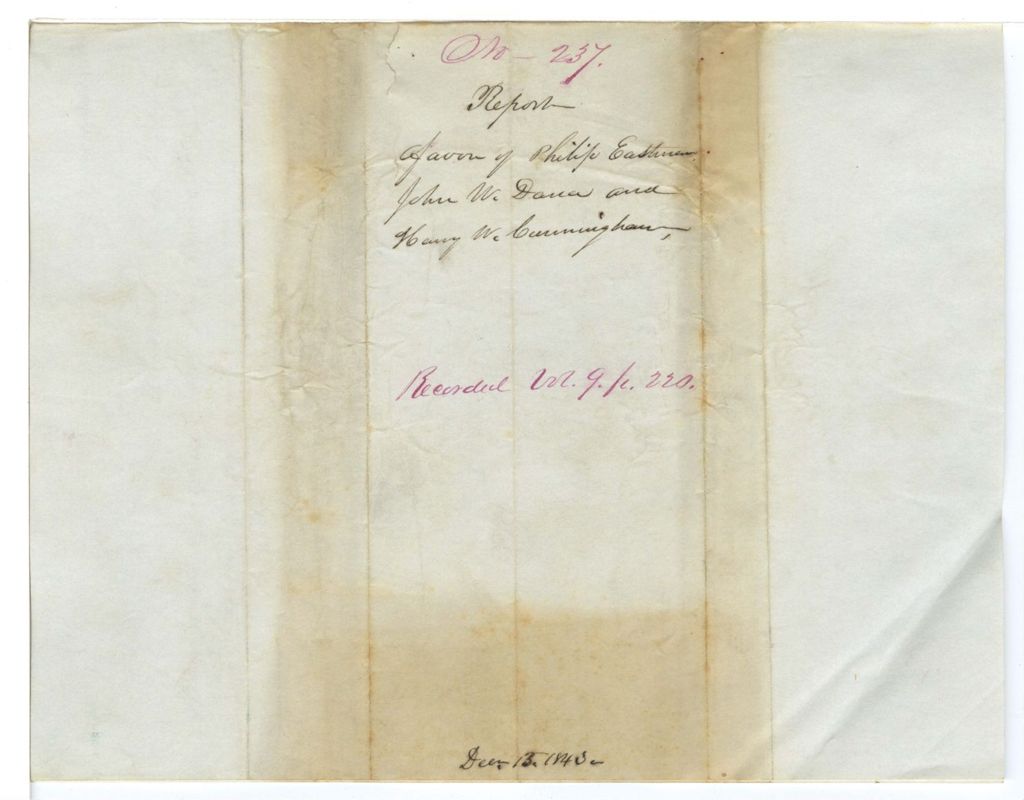 No - 237.
Report
favor of Philip Eastman
John W. Dana and
Henry W. Cunningham,
Recorded Vol. 9. p. 220.
Decr 13. 1843-